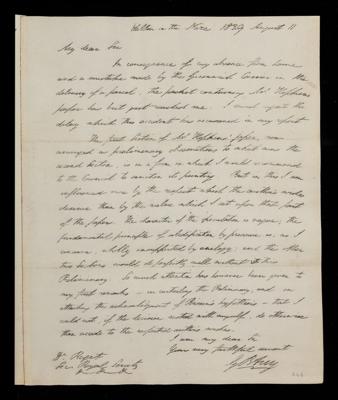 1839 August 11
My dear Sir
In consequence of my absence from home
and a mistake made by the Greenwich Carrier in the
delivery of a parcel, the packet containing Mr Hopkins's
paper has but just reached me. I much regret the
delay which this accident has occasioned in my report
The first Section of Mr Hopkins' paper, now
arranged as preliminary observations to which now the
second Section, is in a form in which I could recommend
to the Council to sanction its printing. But in this I am
influenced more by the respect which the author's wishes
deserve than by the value which I set upon that part
of the paper. The character of the speculation is vague; the
fundamental principle of solidification by pressure is, as I
conceive, wholly unsupported by analogy; and the other
two Sections would do perfectly well without this
Preliminary. So much attention has however been given to
my first remarks - in
attaching the
could not, if the decision rested with myself, do otherwise
than accede to the
author's wishes.
I am my dear Sir
Your very faithful servant
G B Airy
Dr Roget
Sec Royal Society